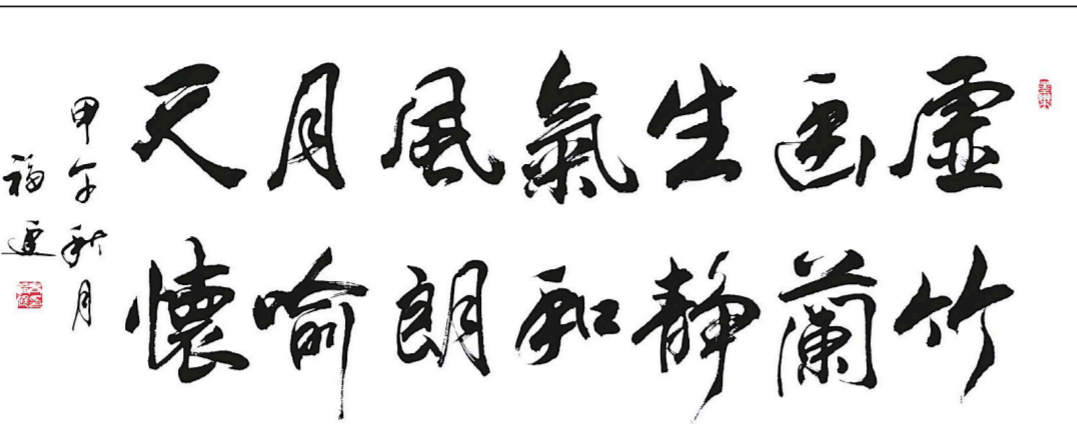 虛竹
幽蘭
生靜
氣和
風朗
月喻
天懷
甲午秋月
福運